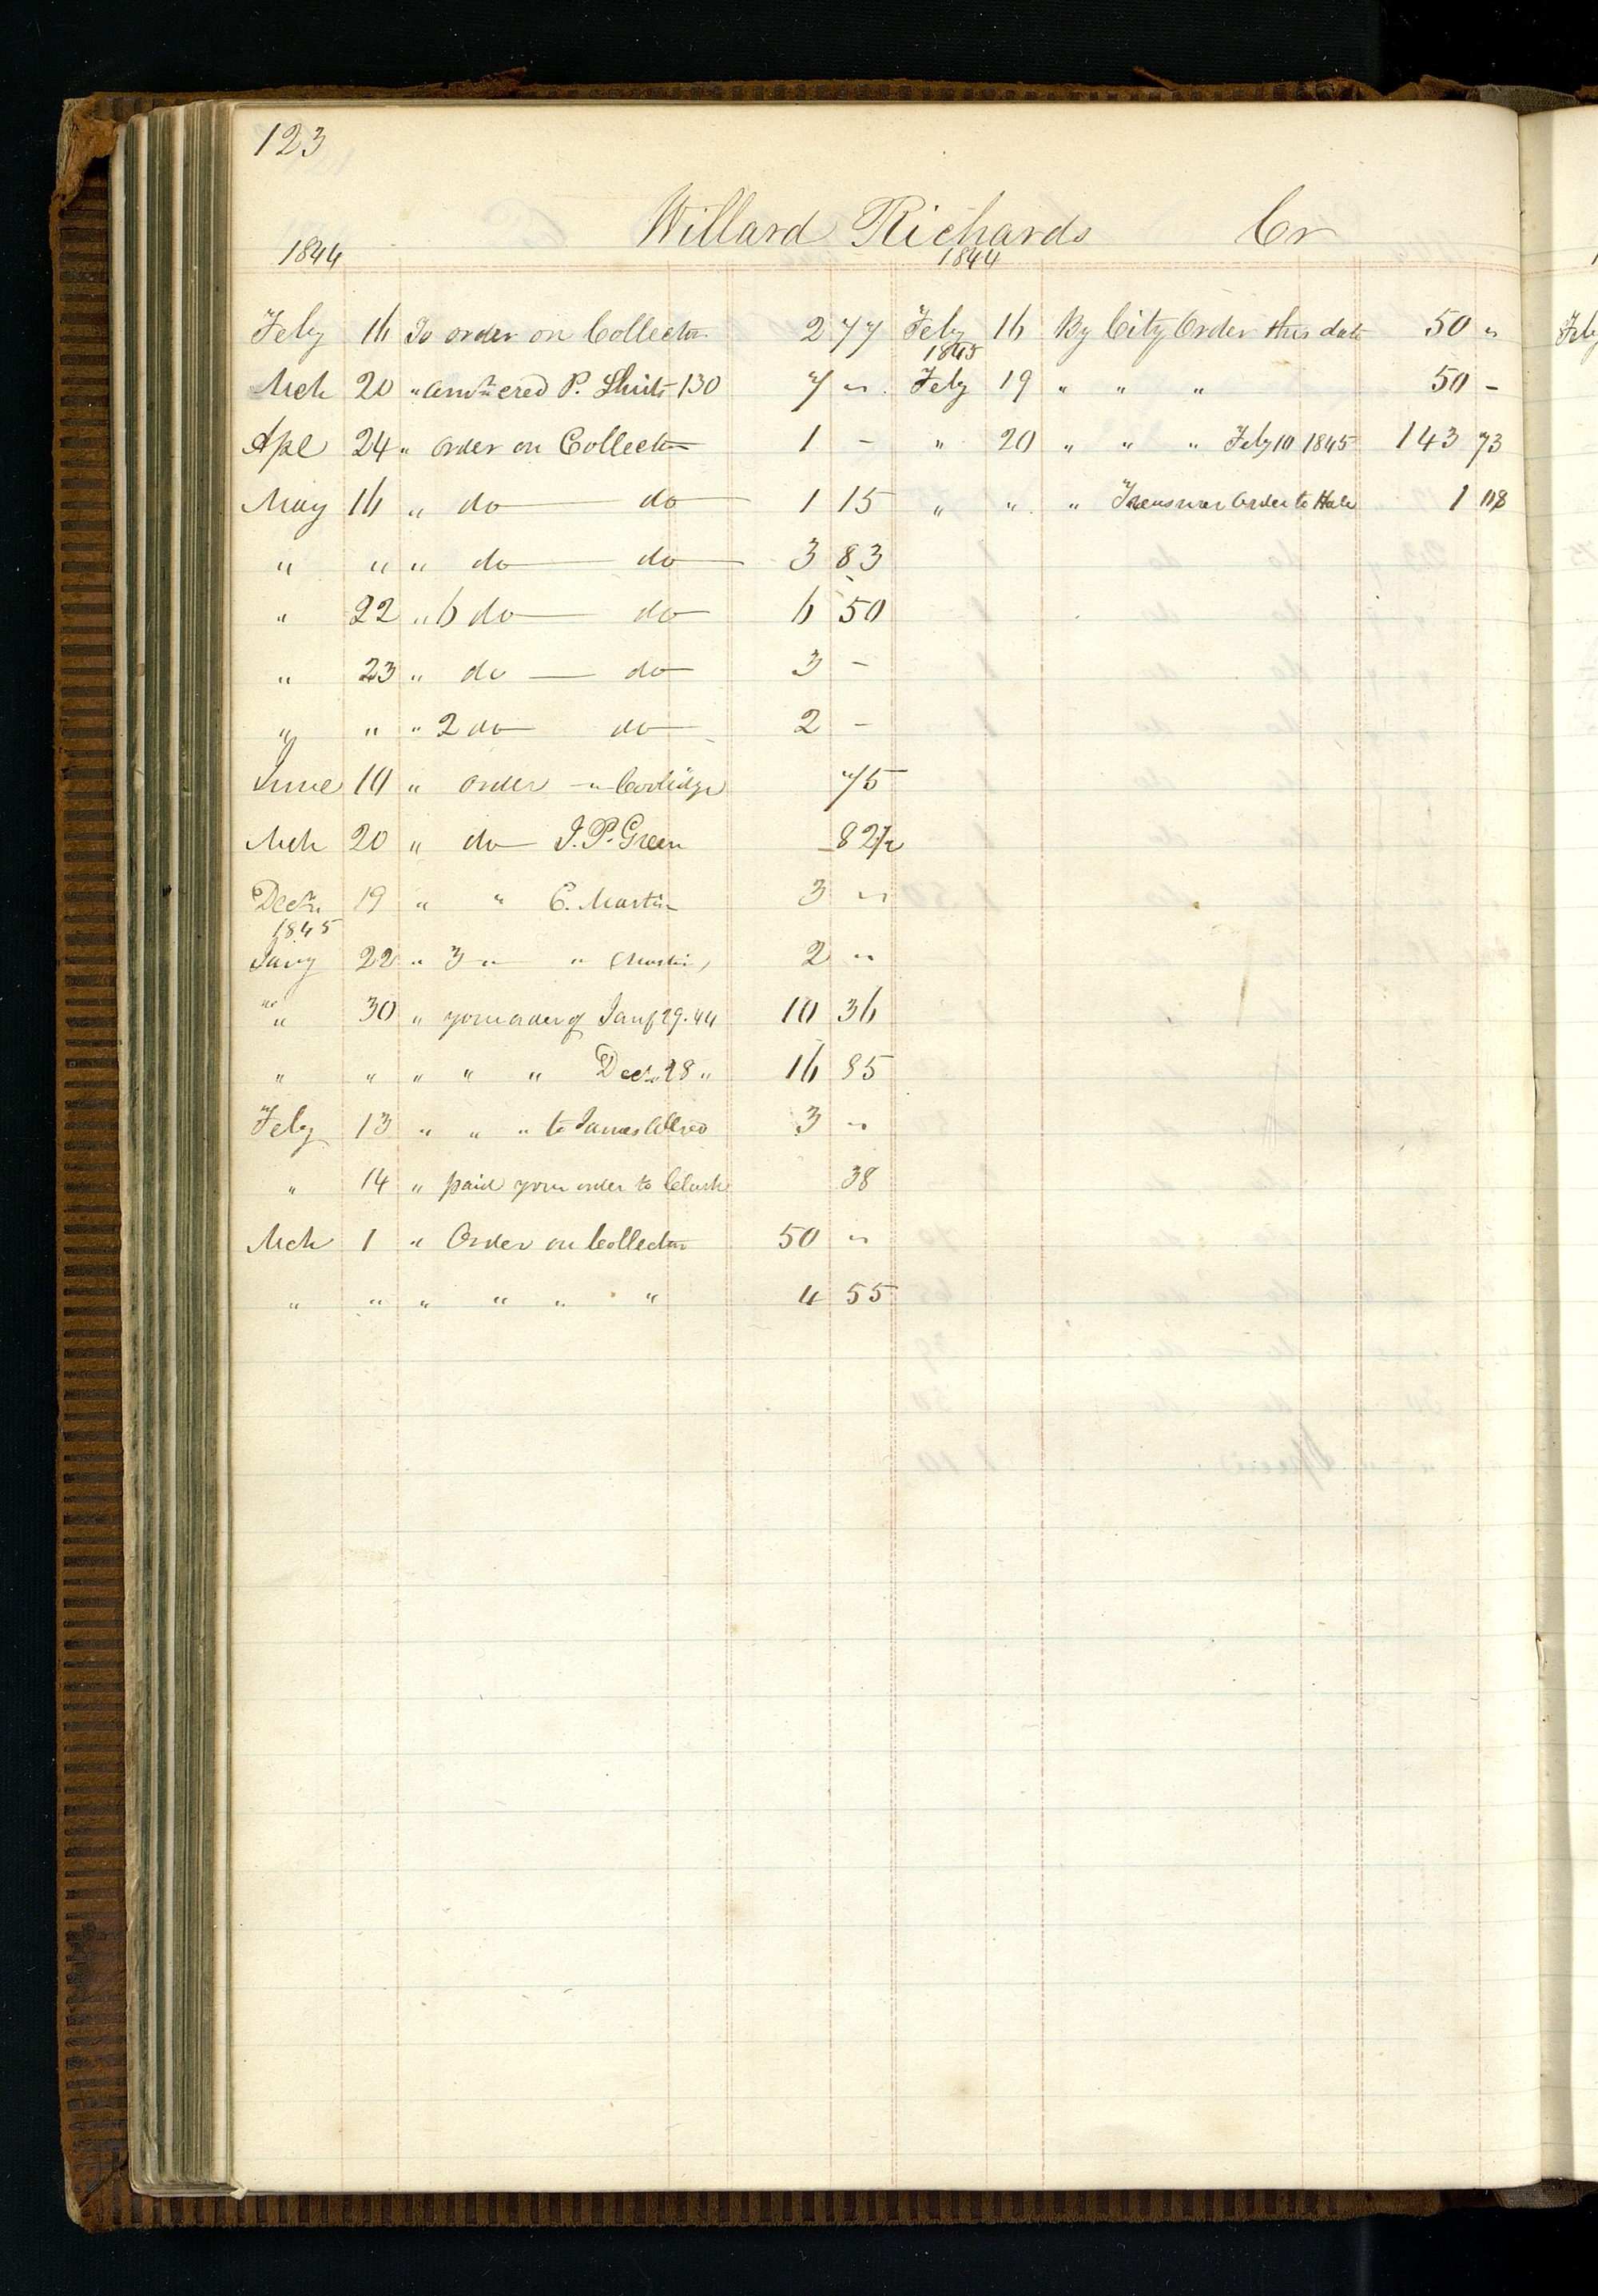 123
Willard Richards Cr
1844 1844
Feby 16 To order on Collector 2 77 Feby 16 By City Order this date 50 "
1845
Mch 20 " amt cred P. Shirts 130 7 " Feby 19 " " " 50 -
Apl 24 " order on Collector 1 - " 20 " " " Feby 10 1845 143 73
May 16 " do do 1 15 " " " Treasurer Order to Hale 1
" " " do do 3 83
" 22 " 6 do do 6 50
" 23 " do do 3 -
" " " 2 do do 2 -
June 10 " order " Coolidge 75
Mch 20 " do J. P. Green 82 1/2
Decr 19 " " C. Martin 3 "
1845
Jany 22 " 3 " " Martin 2 "
" 30 " your order of Jany 29. 44 10 36
" " " " " Decr 28 " 16 85
Feby 13 " " " to James Allred 3 "
" 14 " paid your order to Clark 38
Mch 1 " Order on Collector 50 "
" " " " " " 4 55
Feby